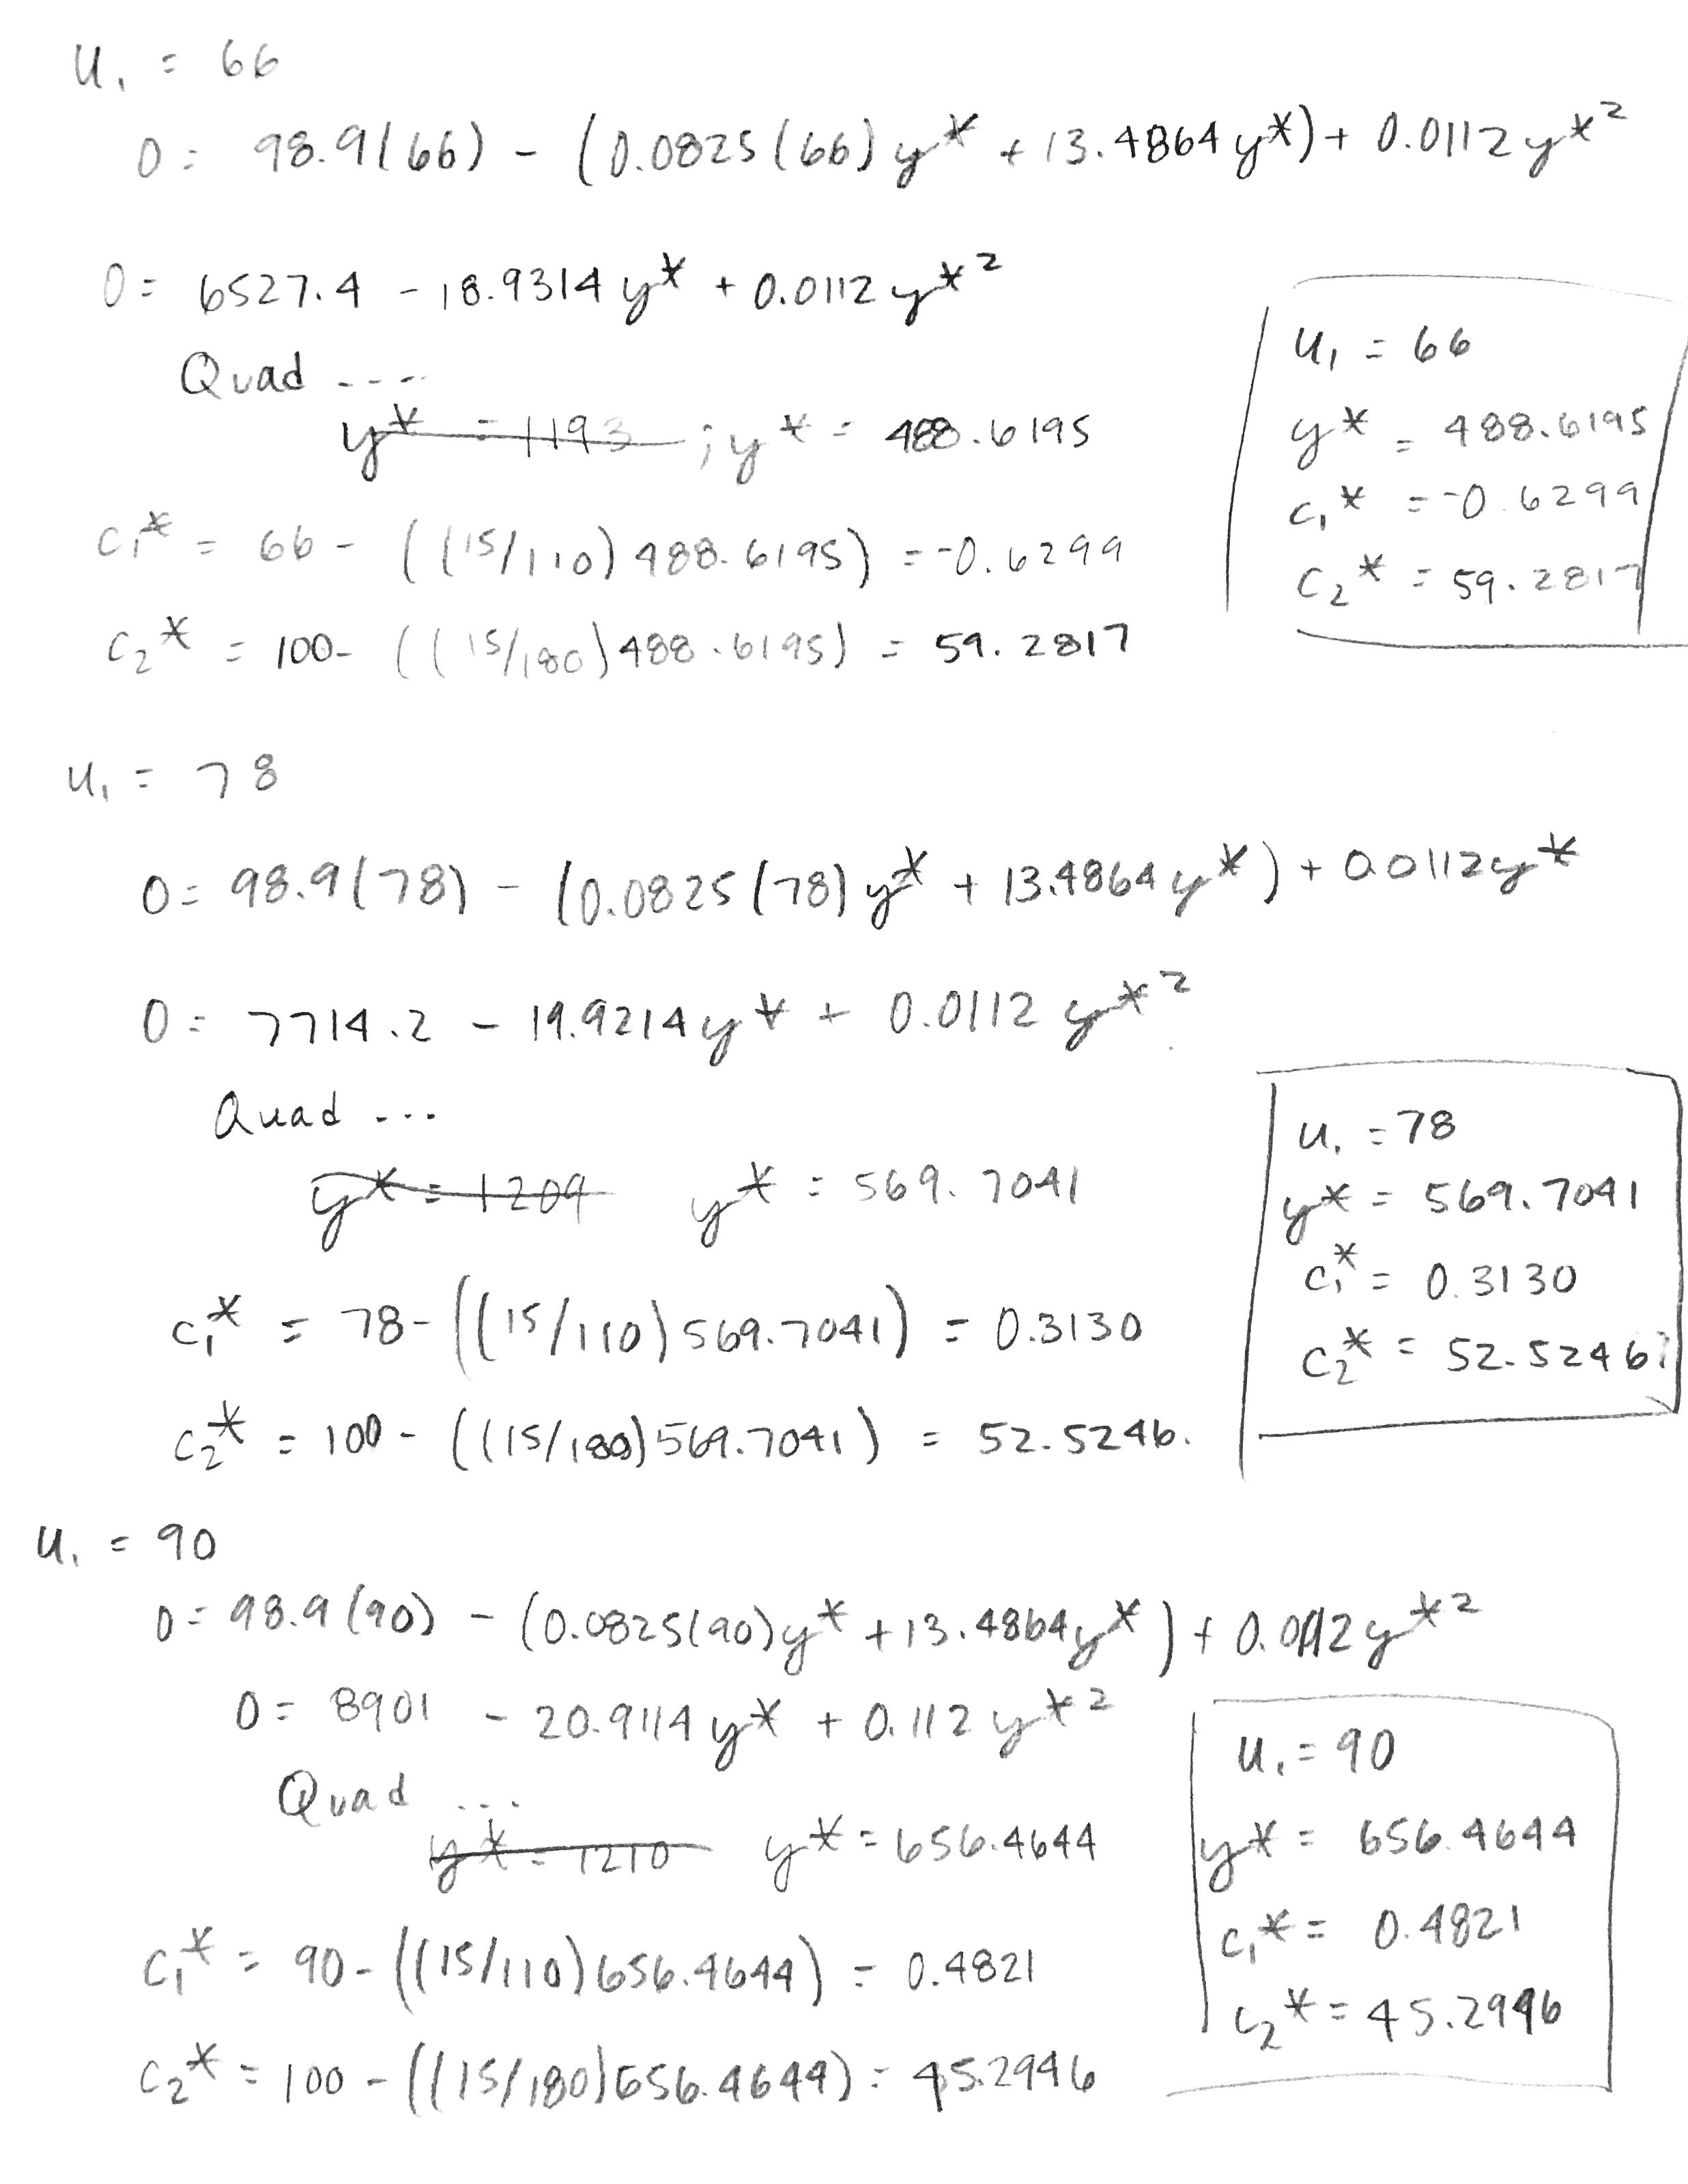 u₁ = 66
0 = 98.9(66) - (0.0825(66)y* + 13.4864y*) + 0.0112y*²
0 = 6527.4 - 18.9314y* + 0.0112y*²
Quad ....
y* = 1193 ; y* = 488.6195
c₁* = 66 - ((15/110)488.6195) = -0.6299
c₂* = 100- ((15/180)488.6195) = 59.2817
u₁ = 66
y* = 488.6195
c₁* = -0.6299
c₂* = 59.2817
u₁ = 78
0 = 98.9(78) - (0.0825(78)y* + 13.4864y*) + 0.0112y*
0 = 7714.2 - 19.9214y* + 0.0112y*²
Quad ...
y* = 1209 y* = 569.7041
c₁* = 78 - ((15/110)569.7041) = 0.3130
c₂* = 100 - ((15/180)569.7041) = 52.5246.
u₁ = 78
y* = 569.7041
c₁* = 0.3130
c₂* = 52.5246
u₁ = 90
0 = 98.9(90) - (0.0825(90)y* + 13.4864y*) + 0.0112y*²
0 = 8901 - 20.9114y* + 0.112y*²
Quad ...
y* = 1210 y* = 656.4644
c₁* = 90 - ((15/110)656.4644) = 0.4821
c₂* = 100 - ((15/180)656.4644) = 45.2946
u₁ = 90
y* = 656.4644
c₁* = 0.4821
c₂* = 45.2946